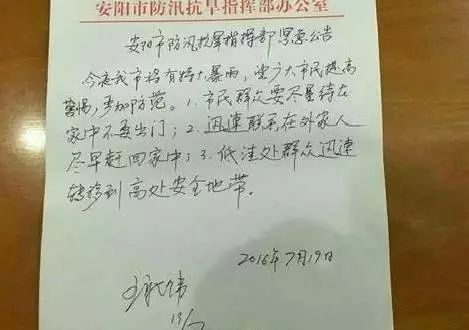 安阳市防汛抗旱指挥部办公室
安阳市防汛抗旱指挥部紧急公告
今夜我市将有特大暴雨，望广大市民提高
警惕，参加防范。1.市民群众要尽量待在
家中不要出门；2.迅速联系在外家人
尽早赶回家中；3.低洼处群众迅速
转移到高处安全地带。
2016年7月19日
19/7